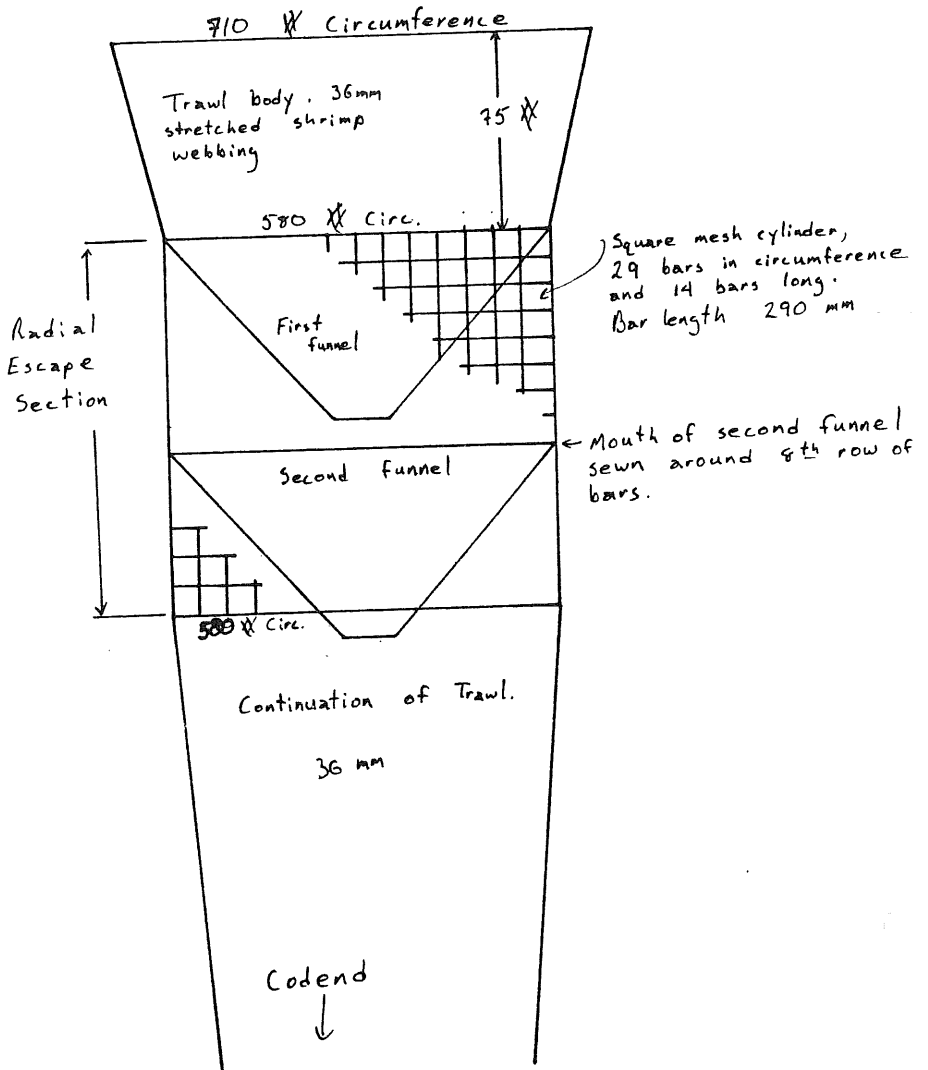 710 Circumference
Trawl body. 36mm
stretched shrimp
webbing
75
580 Circ.
Square mesh cylinder,
29 bars in circumference
and 14 bars long.
Bar length 290 mm
Radial
Escape
Section
First
funnel
Mouth of second funnel
sewn around 8th row of
bars.
Second funnel
580 Circ.
Continuation of Trawl.
36 mm
Codend